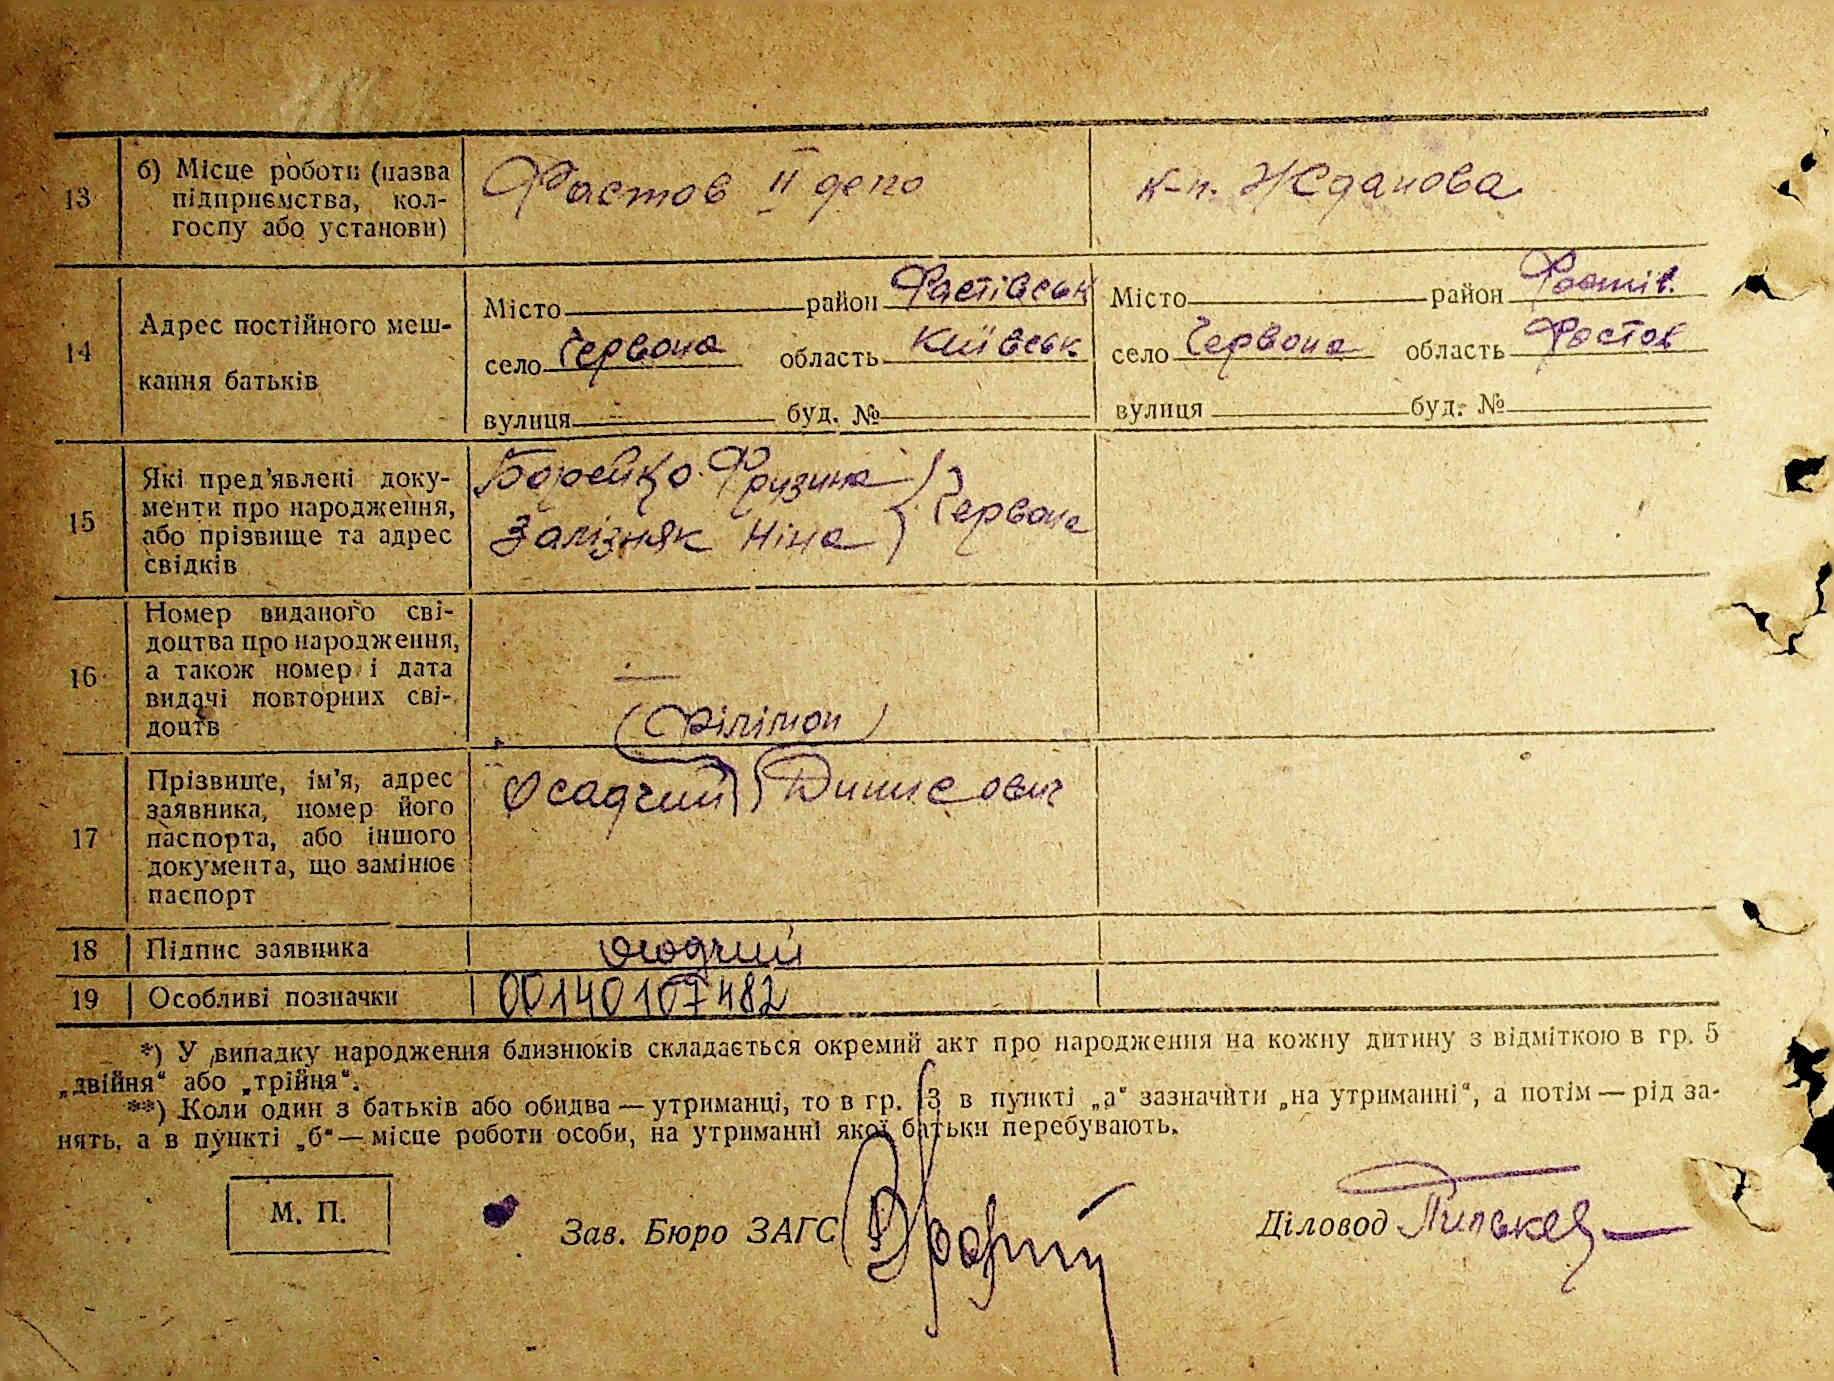 13 б) Місце роботи (назва підприємства, колгоспу або установи) Фастов II депо к-п. Жданова
14 Адрес постійного меш-
кання батьків
Місто район Фастівськ Місто район Фастів.
село Червона область Київськ село Червона область Фастов
вулиця буд. № вулиця буд. №
15 Які пред'явлені доку-
менти про народження,
або прізвище та адрес
свідків
Борейко Фрузина
Залізняк Ніна } Червона
16 Номер виданого сві-
доцтва про народження,
а також номер і дата
видачі повторних сві-
доцтв
(Філімон)
17 Прізвище, ім'я, адрес
заявника, номер його
паспорта, або іншого
документа, що замінює
паспорт
Осадчий Динисович
18 Підпис заявника Осадчий
19 Особливі позначки 00140107482
*) У випадку народження близнюків складається окремий акт про народження на кожну дитину з відміткою в гр. 5
„двійня“ або „трійня“.
**) Коли один з батьків або обидва — утриманці, то в гр. 13 в пункті „а“ зазначити „на утриманні“, а потім — рід за-
нять, а в пункті „б“ — місце роботи особи, на утриманні якої батьки перебувають.
М. П.
Зав. Бюро ЗАГС
Діловод